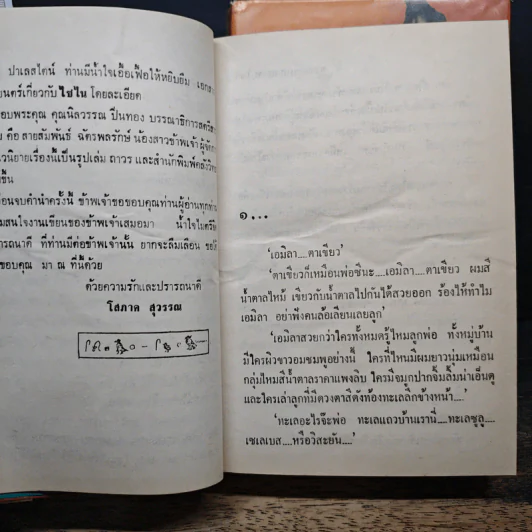 ปาเลสไตน์ ท่านมีน้ำใจเอื้อเฟื้อให้หยิบยืม เอกสา
ยนตร์เกี่ยวกับไซไน โดยละเอียด
อบพระคุณ คุณนิลวรรณ ปิ่นทอง บรรณาธิการสตรีสา
คือ สายสัมพันธ์ ฉัตรพลรักษ์ น้องสาวข้าพเจ้า ผู้จัดกา
วนิยายเรื่องนี้เป็นรูปเล่ม ถาวร และสำนักพิมพ์คลังวิท
ขึ้น
่อนจบคำนำครั้งนี้ ข้าพเจ้าขอขอบคุณท่านผู้อ่านทุกท่า
มสนใจงานเขียนของข้าพเจ้าเสมอมา น้ำใจไมตรีอั
ารถนาดี ที่ท่านมีต่อข้าพเจ้านั้น ยากจะลืมเลือน ขอใ
ขอบคุณ มา ณ ที่นี้ด้วย
ด้วยความรักและปรารถนาดี
โสภาค สุวรรณ
๑...
'เอมิลา....ตาเขียว'
'ตาเขียวก็เหมือนพ่อซีนะ....เอมิลา....ตาเขียว ผมสี
น้ำตาลไหม้ เขียวกับน้ำตาลไปกันได้สวยออก ร้องไห้ทำไม
เอมิลา อย่าฟังคนล้อเลียนเลยลูก'
'เอมิลาสวยกว่าใครทั้งหมดรู้ไหมลูกพ่อ ทั้งหมู่บ้าน
มีใครผิวขาวอมชมพูอย่างนี้ ใครที่ไหนมีผมยาวนุ่มเหมือน
กลุ่มไหมสีน้ำตาลราคาแพงลิบ ใครมีจมูกปากจิ้มลิ้มน่าเอ็นดู
และใครเล่าลูกที่มีดวงตาสีดังท้องทะเลลึกข้างหน้า....'
'ทะเลอะไรจ๊ะพ่อ ทะเลแถวบ้านเรานี่....ทะเลซูลู....
เซเลเบส....หรือวิสะยัน....'